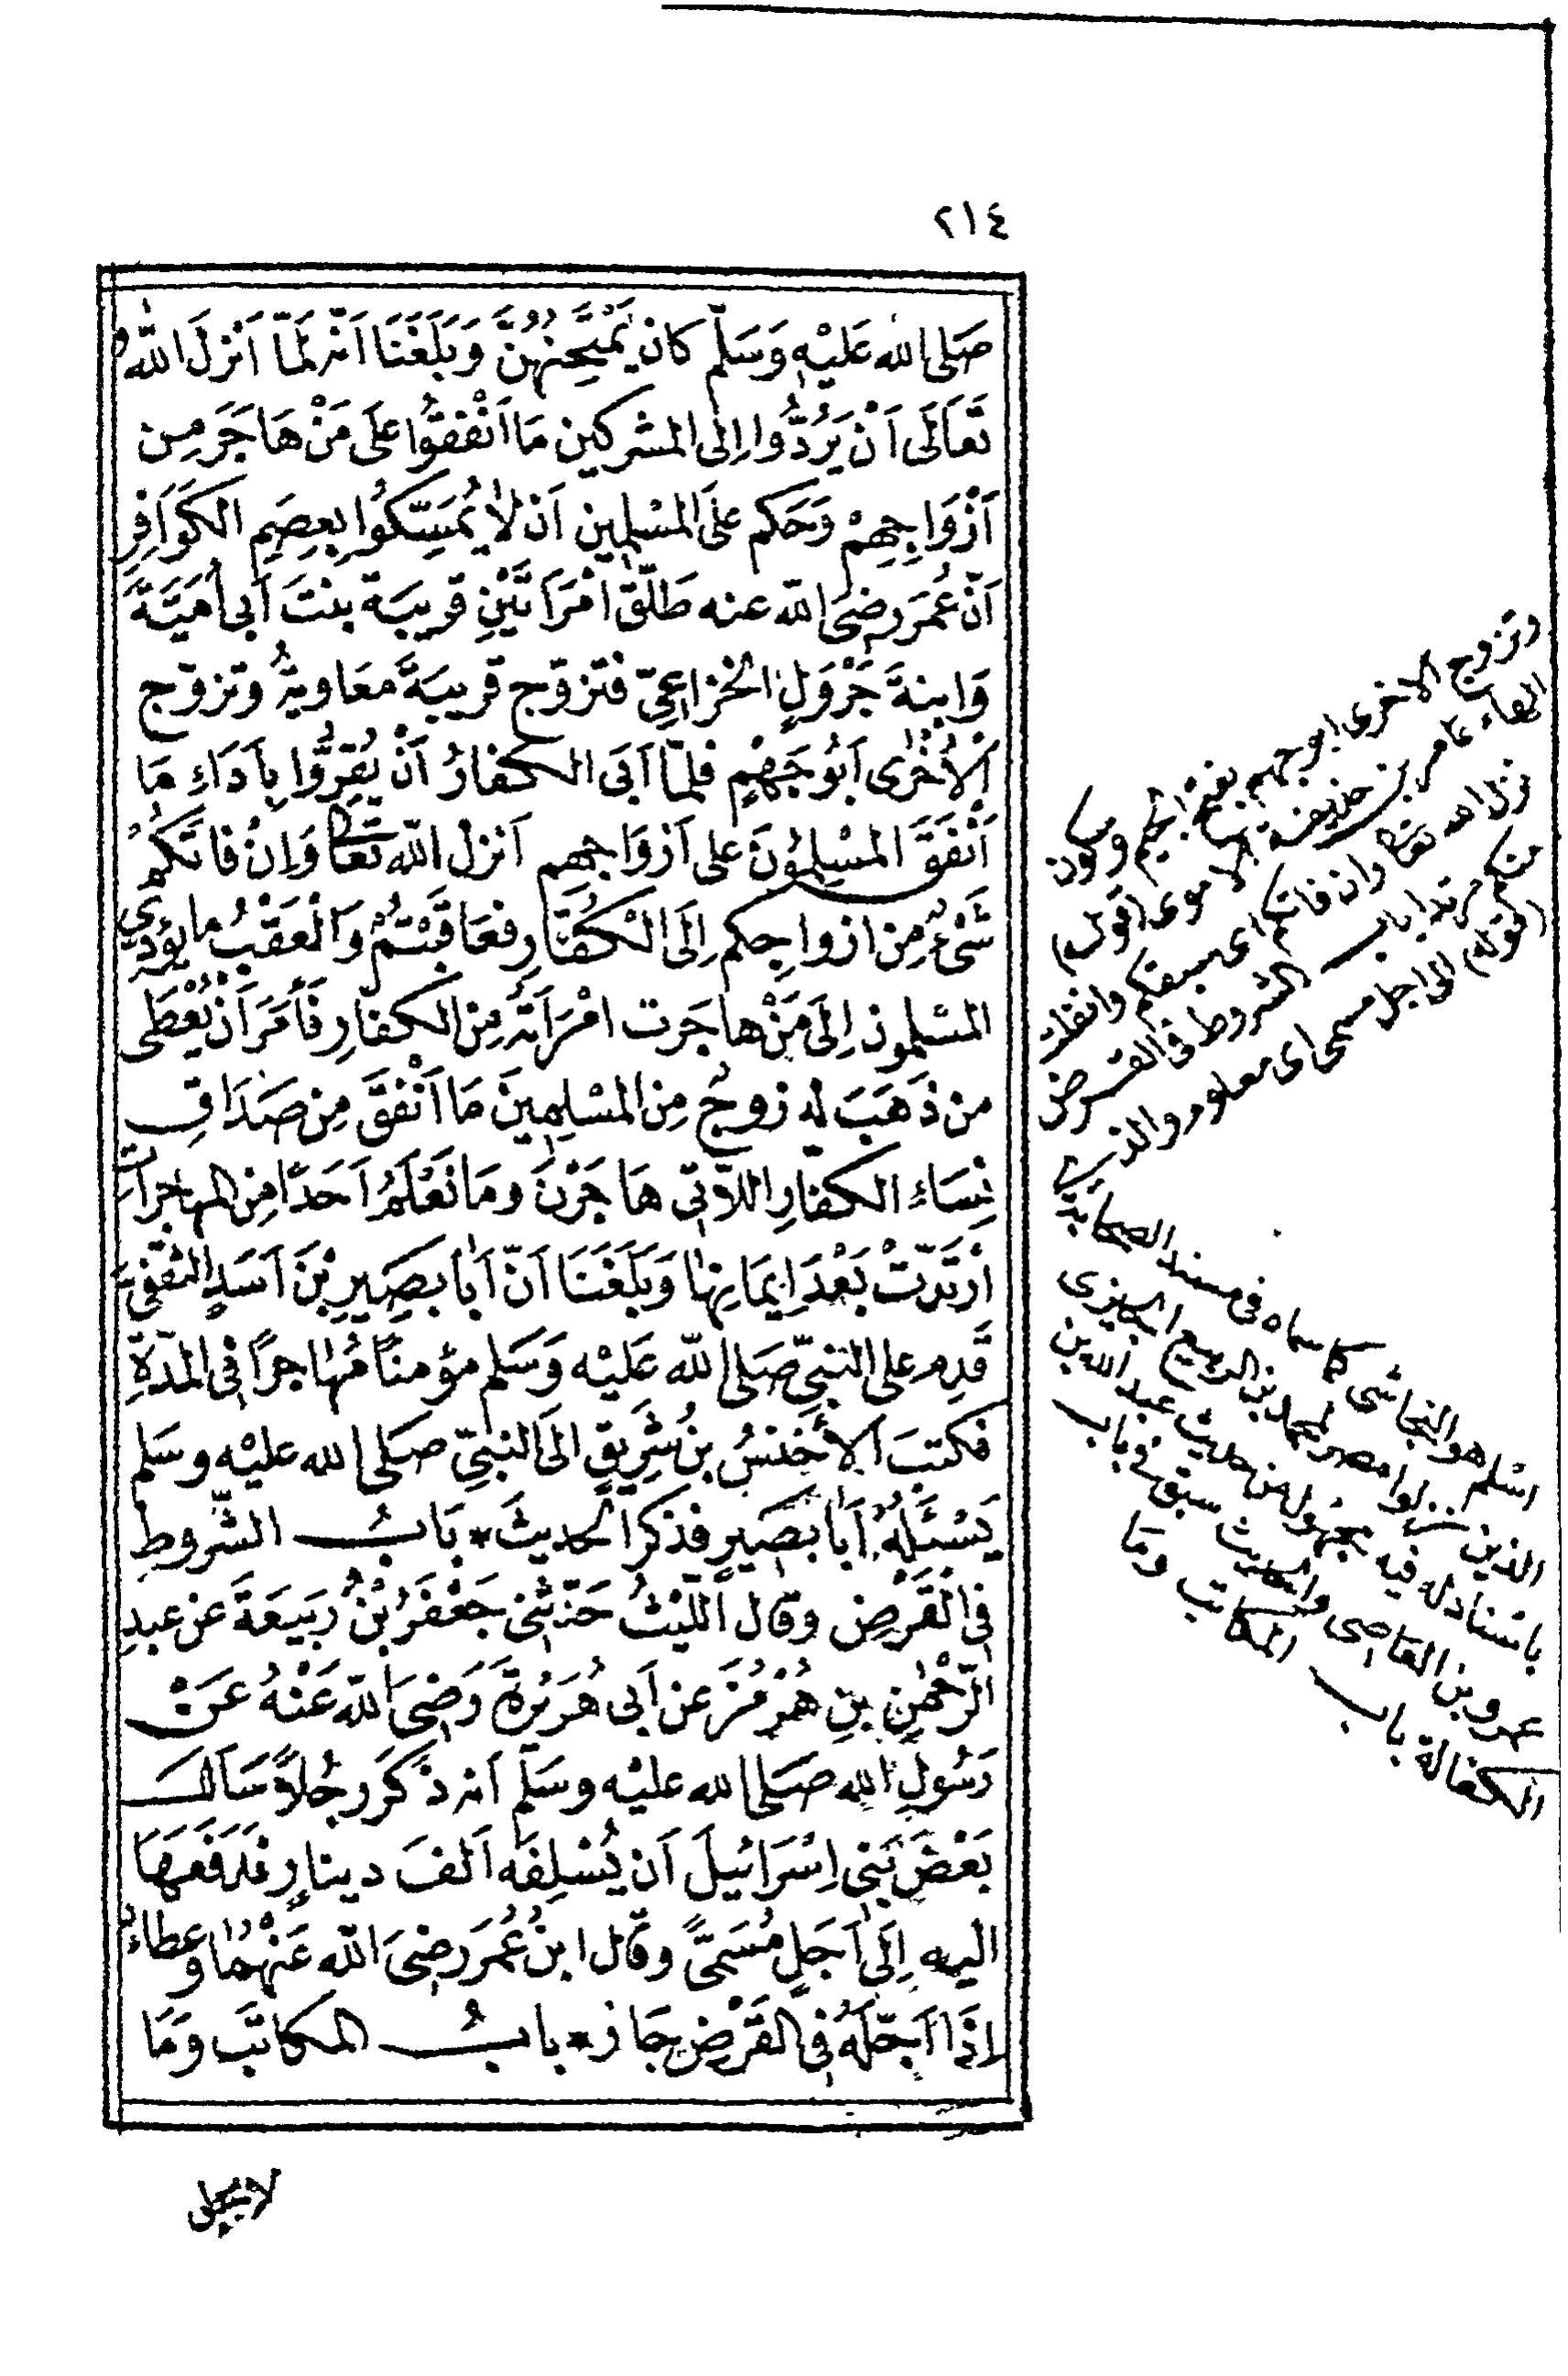 ٢١٤
صَلى الله عَلَيْهِ وَسَلّم كان يَمْتَحِنُهُنَّ وَبَلَغَنَا اَنّه لَمّا اَنْزلَ الله
تَعَالَى اَنْ يَرُدُّوا اِلى المشركين مَا اَنْفَقُوا عَلَى مَنْ هَاجَرَ مِن
اَزْوَاجِهِمْ وَحَكم عَلَى المسْلِمِين اَن لا يُمَسِّكُوا بِعِصَمِ الكَوَافِرِ
اَنّ عُمَرَ رضىَ الله عنه طَلّقَ امْرَاَتَيْنِ قَرِيبَة بِنْتَ اَبى اُمَيَّةَ
وَابنةَ جَرْوَلٍ الخُزاعِىّ فتزوّج قَرِيبَةَ معَاويةُ وتزوّج
الاُخْرٰى اَبُو جَهْمٍ فلمّا اَبَى الكفارُ اَنْ يُقِرُّوا بِاَدَاءِ مَا
اَنْفَقَ المسْلِمُونَ على اَزْوَاجهم اَنزل الله تَعَالى وَاِنْ فاتَكُمْ
شَىْءٌ مِن ازواجِكم اِلَى الْكُفّارِ فعَاقَبْتُمْ وَالْعَقْبُ ما يؤدّي
المسْلِمون اِلَى مَنْ هاجَرت امْرَاَتهُ مِن الكفارِ فَاَمَرَ اَنْ يُعْطَى
من ذَهَبَ له زوجٌ مِن المسْلِمِينَ مَا اَنْفَقَ مِن صَدَاقِ
نِسَاءِ الكفارِ اللاّتى هَاجَرْنَ ومَا نَعْلَمُ اَحَدًا مِن المهاجرَاتِ
ارْتَدّتْ بَعْدَ اِيمَانِهَا وَبَلَغَنَا اَنّ اَبَا بَصِيرِ بْنَ اَسَيدٍ الثقفىّ
قَدِمَ على النبىّ صَلى الله عَلَيْه وَسَلم مؤمناً مُهاجراً فى المدّةِ
فكتبَ الاَخنسُ بنُ شَرِيقٍ الى النبىّ صَلى الله عليْه وسَلم
يَسْئَلُهُ اَبَا بَصَيرٍ فذكر الحديثَ * بَابُ الشّروطِ
فى الْقَرْضِ وقال اللّيثُ حَدّثنى جَعْفَرُ بْنُ رَبيعَةَ عن عبدِ
الرّحْمٰنِ بنِ هُرْمُزَ عن اَبى هُرَيْرَةَ رَضىَ الله عَنْهُ عَنْ
رَسُولِ الله صَلى الله عليْه وسَلّم اَنه ذكَرَ رجُلاً سَاَلَ
بَعْضَ بَنى اِسْرَائيلَ اَن يُسْلِفَه اَلفَ دينارٍ فَدَفَعَهَا
اليه اِلَى اَجَلٍ مُسَمًّى وقَال ابنُ عُمَرَ رضىَ الله عَنْهُمَا وعطاءٌ
اِذَا اَجّلَهُ فى القَرْضِ جَازَ * بابُ المكاتَب وَمَا
وتزوج الاخرى ابو جهم بفتح الجيم وسكون
الهاء عامر بن حذيفة الاموى (قوله)
الى اجل مسمى اى معلوم والذى
اسْلم هو النجاشى كما سماه فى مسند الصحابة
الذين نزلوا مصر لمحمد بن الربيع الجيزى
باسناد له فيه مجهول من حديث عبد الله بن
عمرو بن العاصى والحديث سبق فى باب
الكفالة باب المكاتب وما